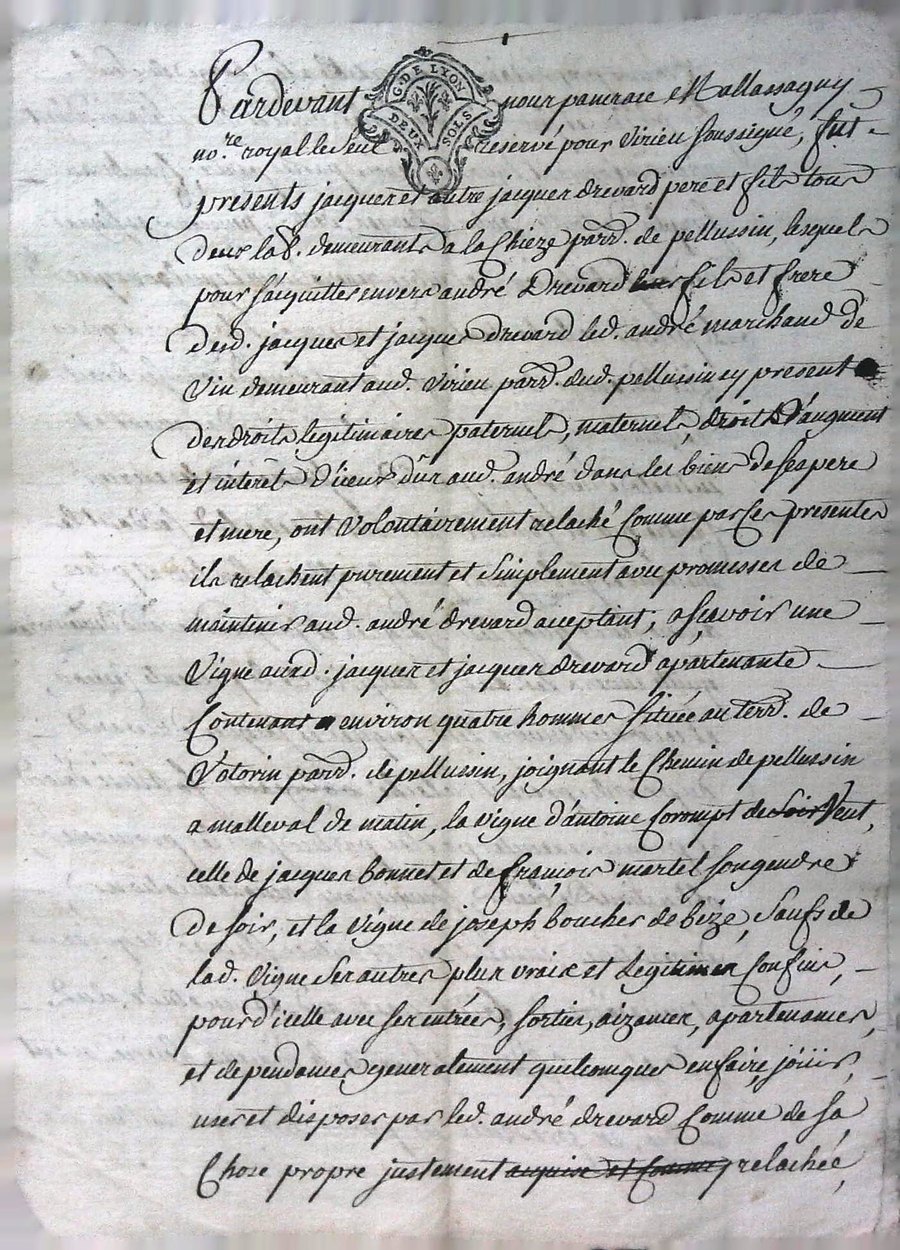 G. DE LYON
DEUX SOLS
Pardevant nous pancrace Mallassagny
no.re royal le seul reservé pour Virieu soussigné, fut
presents jacques et autre jacques drevard pere et fils tous
deux lab. demeurants a la Chieze parr. de pellussin, lesquels
pour s'aquitter envers andré Drevard fils et frere
desd. jacques et jacques drevard led. andré marchand de
Vin demeurant aud. Virieu parr. dud. pellussin ey present
des droits legitimaires paternels, maternels, droits d'augment
et intérêts d'iceux dûs aud. andré dans les biens de ses pere
et mere, ont Volontairement relaché Comme par Ces presentes
ils relachent purement et simplement avec promesses de
maintenir aud. andré drevard acceptant; asçavoir une
Vigne auxd. jacques et jacques drevard apartenante
Contenant environ quatre hommes située au terr. de
Votorin parr. de pellussin, joignant le Chemin de pellussin
a malleval de matin, la vigne d'antoine Corompt de soir Vent,
celle de jacques bonnet et de françois martel son gendre
de soir, et la Vigne de joseph boucher de bize, saufs de
lad. Vigne ses autres plus vraix et Legitimes Confins,
pour d'icelle avec ses entrées, sorties, aizances, apartenances,
et dependances generalement quelconques en faire, joüir,
user et disposer par led. andré drevard Comme de sa
Chose propre justement aquise et Comme relachée,